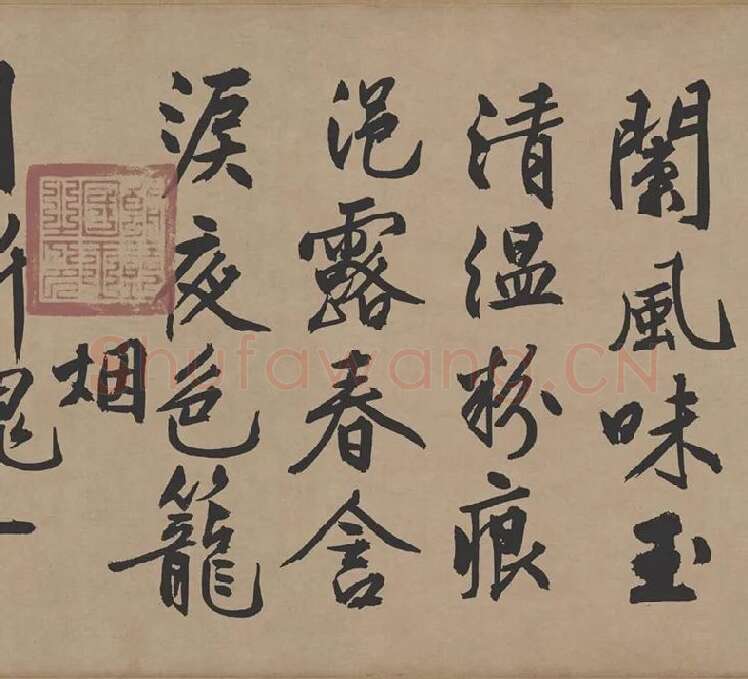 蘭風味玉
清温粉痕
浥露春含
淚夜色籠
烟
Shufawang.CN